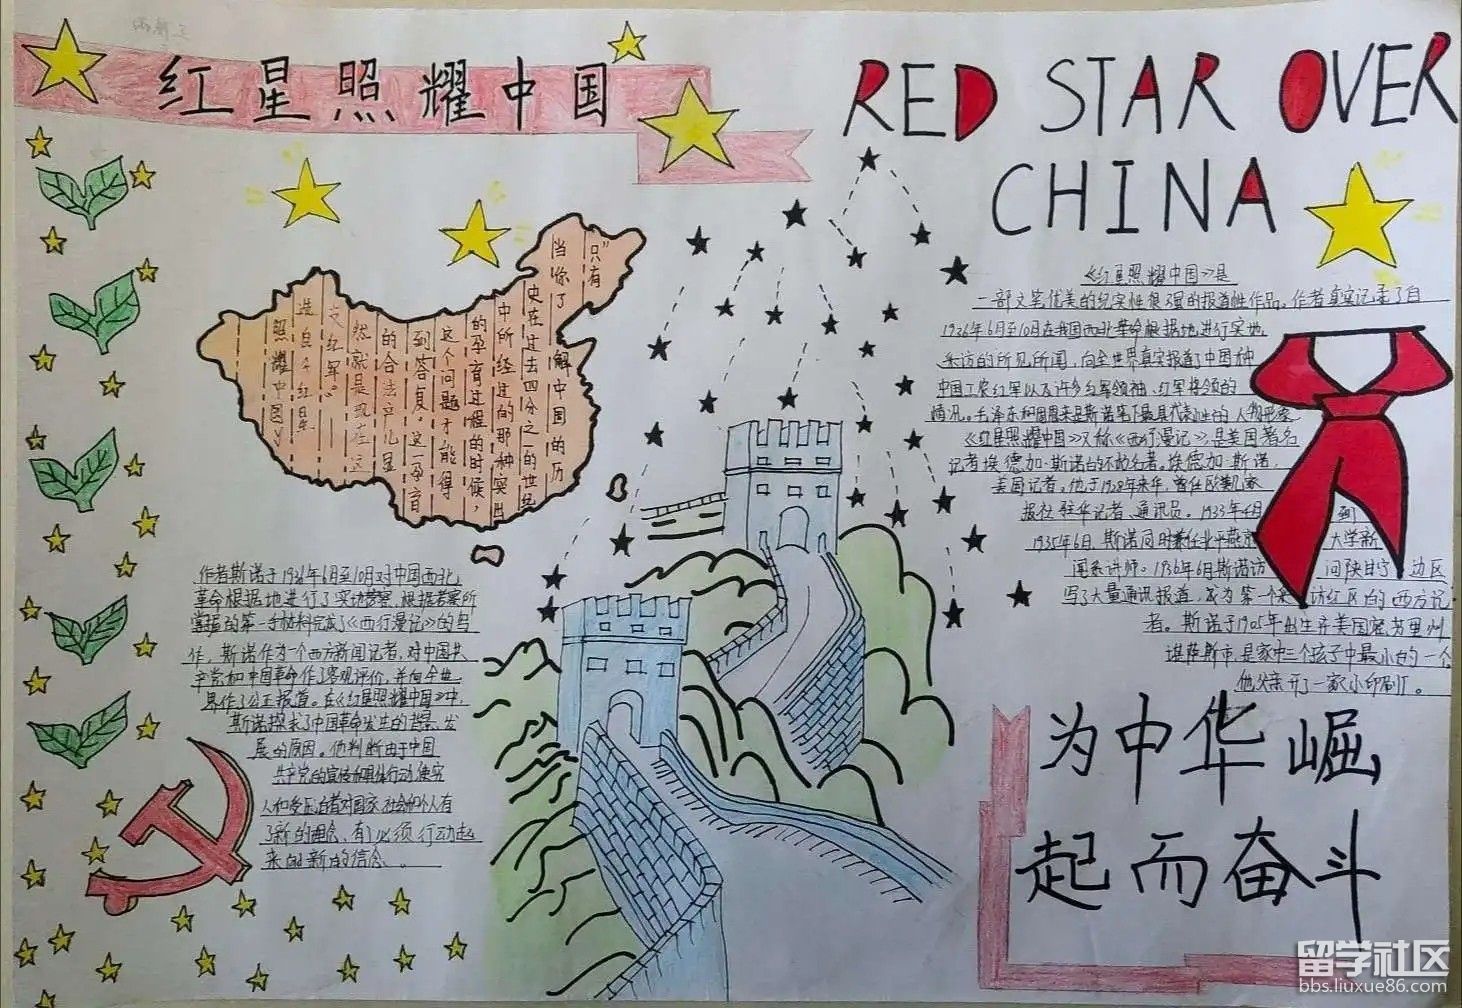 红星照耀中国
RED STAR OVER
CHINA
“只有
当你了
解中国的历
史在过去四分之一的世纪
中所经过的那种突出
的孕育过程的时候，
这个问题才能得
到答复。这一孕育
的合法产儿显
然就是现在这
支红军。”
——
选自《红星
照耀中国》
《红星照耀中国》是
一部文笔优美的纪实性很强的报道性作品。作者真实记录了自
1936年6月至10月在我国西北革命根据地进行实地
采访的所见所闻，向全世界真实报道了中国和
中国工农红军以及许多红军领袖、红军将领的
情况。毛泽东和周恩来是斯诺笔下最具代表性的人物形象
《红星照耀中国》又称《西行漫记》，是美国著名
记者埃德加·斯诺的不朽名著，埃德加·斯诺，
美国记者。他于1928年来华，曾任欧美几家
报社驻华记者、通讯员。1933年4月到
1935年6月，斯诺同时兼任北平燕京大学新
闻系讲师。1936年6月斯诺访问陕甘宁边区
写了大量通讯报道，成为第一个采访红区的西方记
者。斯诺于1905年出生于美国密苏里州
堪萨斯市，是家中三个孩子中最小的一个
他父亲开了一家小印刷厂。
作者斯诺于1936年6月至10月对中国西北
革命根据地进行了实地考察，根据考察所
掌握的第一手材料完成了《西行漫记》的写
作，斯诺作为一个西方新闻记者，对中国共
产党和中国革命作了客观评价，并向全世
界作了公正报道。在《红星照耀中国》中，
斯诺探求了中国革命发生的背景、发
展的原因。他判断由于中国
共产党的宣传和具体行动，使穷
人和受压迫者对国家、社会和个人有
了新的理念，有了必须行动起
来的新的信念。
为中华崛
起而奋斗
留学社区
bbs.liuxue86.com